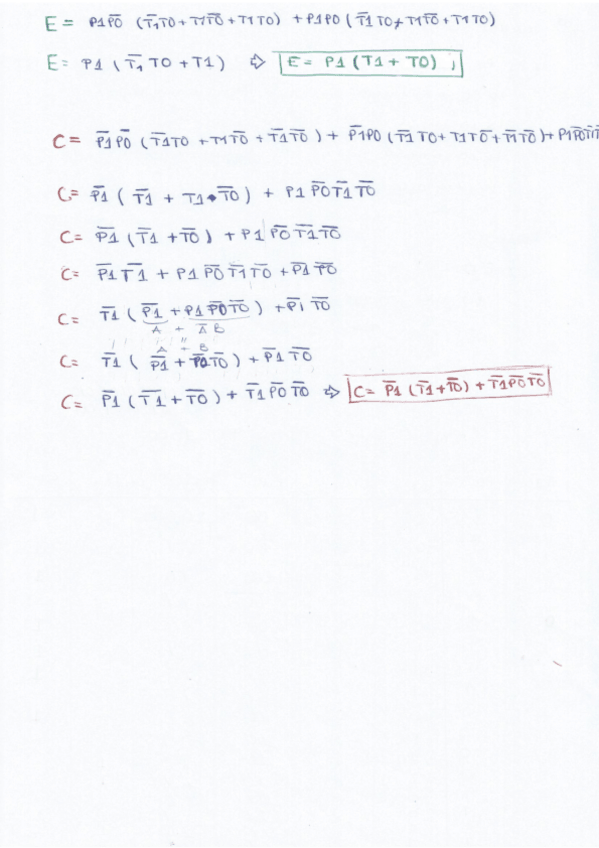 E = P1P̅0̅ (T̅1̅T0 + T1T̅0̅ + T1T0) + P1P0 (T̅1̅T0 + T1T̅0̅ + T1T0)
E = P1 (T̅1̅ T0 + T1) ⇨ E = P1 (T1 + T0) ;
C = P̅1̅P̅0̅ (T̅1̅T0 + T1T̅0̅ + T̅1̅T̅0̅) + P̅1̅P0 (T̅1̅T0 + T1T̅0̅ + T̅1̅T̅0̅) + P1P̅0̅T̅1̅
C = P̅1̅ (T̅1̅ + T1•T̅0̅) + P1P̅0̅T̅1̅T̅0̅
C = P̅1̅ (T̅1̅ + T̅0̅) + P1P̅0̅T̅1̅T̅0̅
C = P̅1̅T̅1̅ + P1P̅0̅T̅1̅T̅0̅ + P̅1̅
C = T̅1̅ (P̅1̅ + P1P̅0̅T̅0̅) + P̅1̅T̅0̅
A + A̅ B
A + B
C = T̅1̅ (P̅1̅ + P̅0̅T̅0̅) + P̅1̅T̅0̅
C = P̅1̅ (T̅1̅ + T̅0̅) + T̅1̅P̅0̅T̅0̅ ⇨ C = P̅1̅ (T̅1̅ + T̅0̅) + T̅1̅P̅0̅T̅0̅